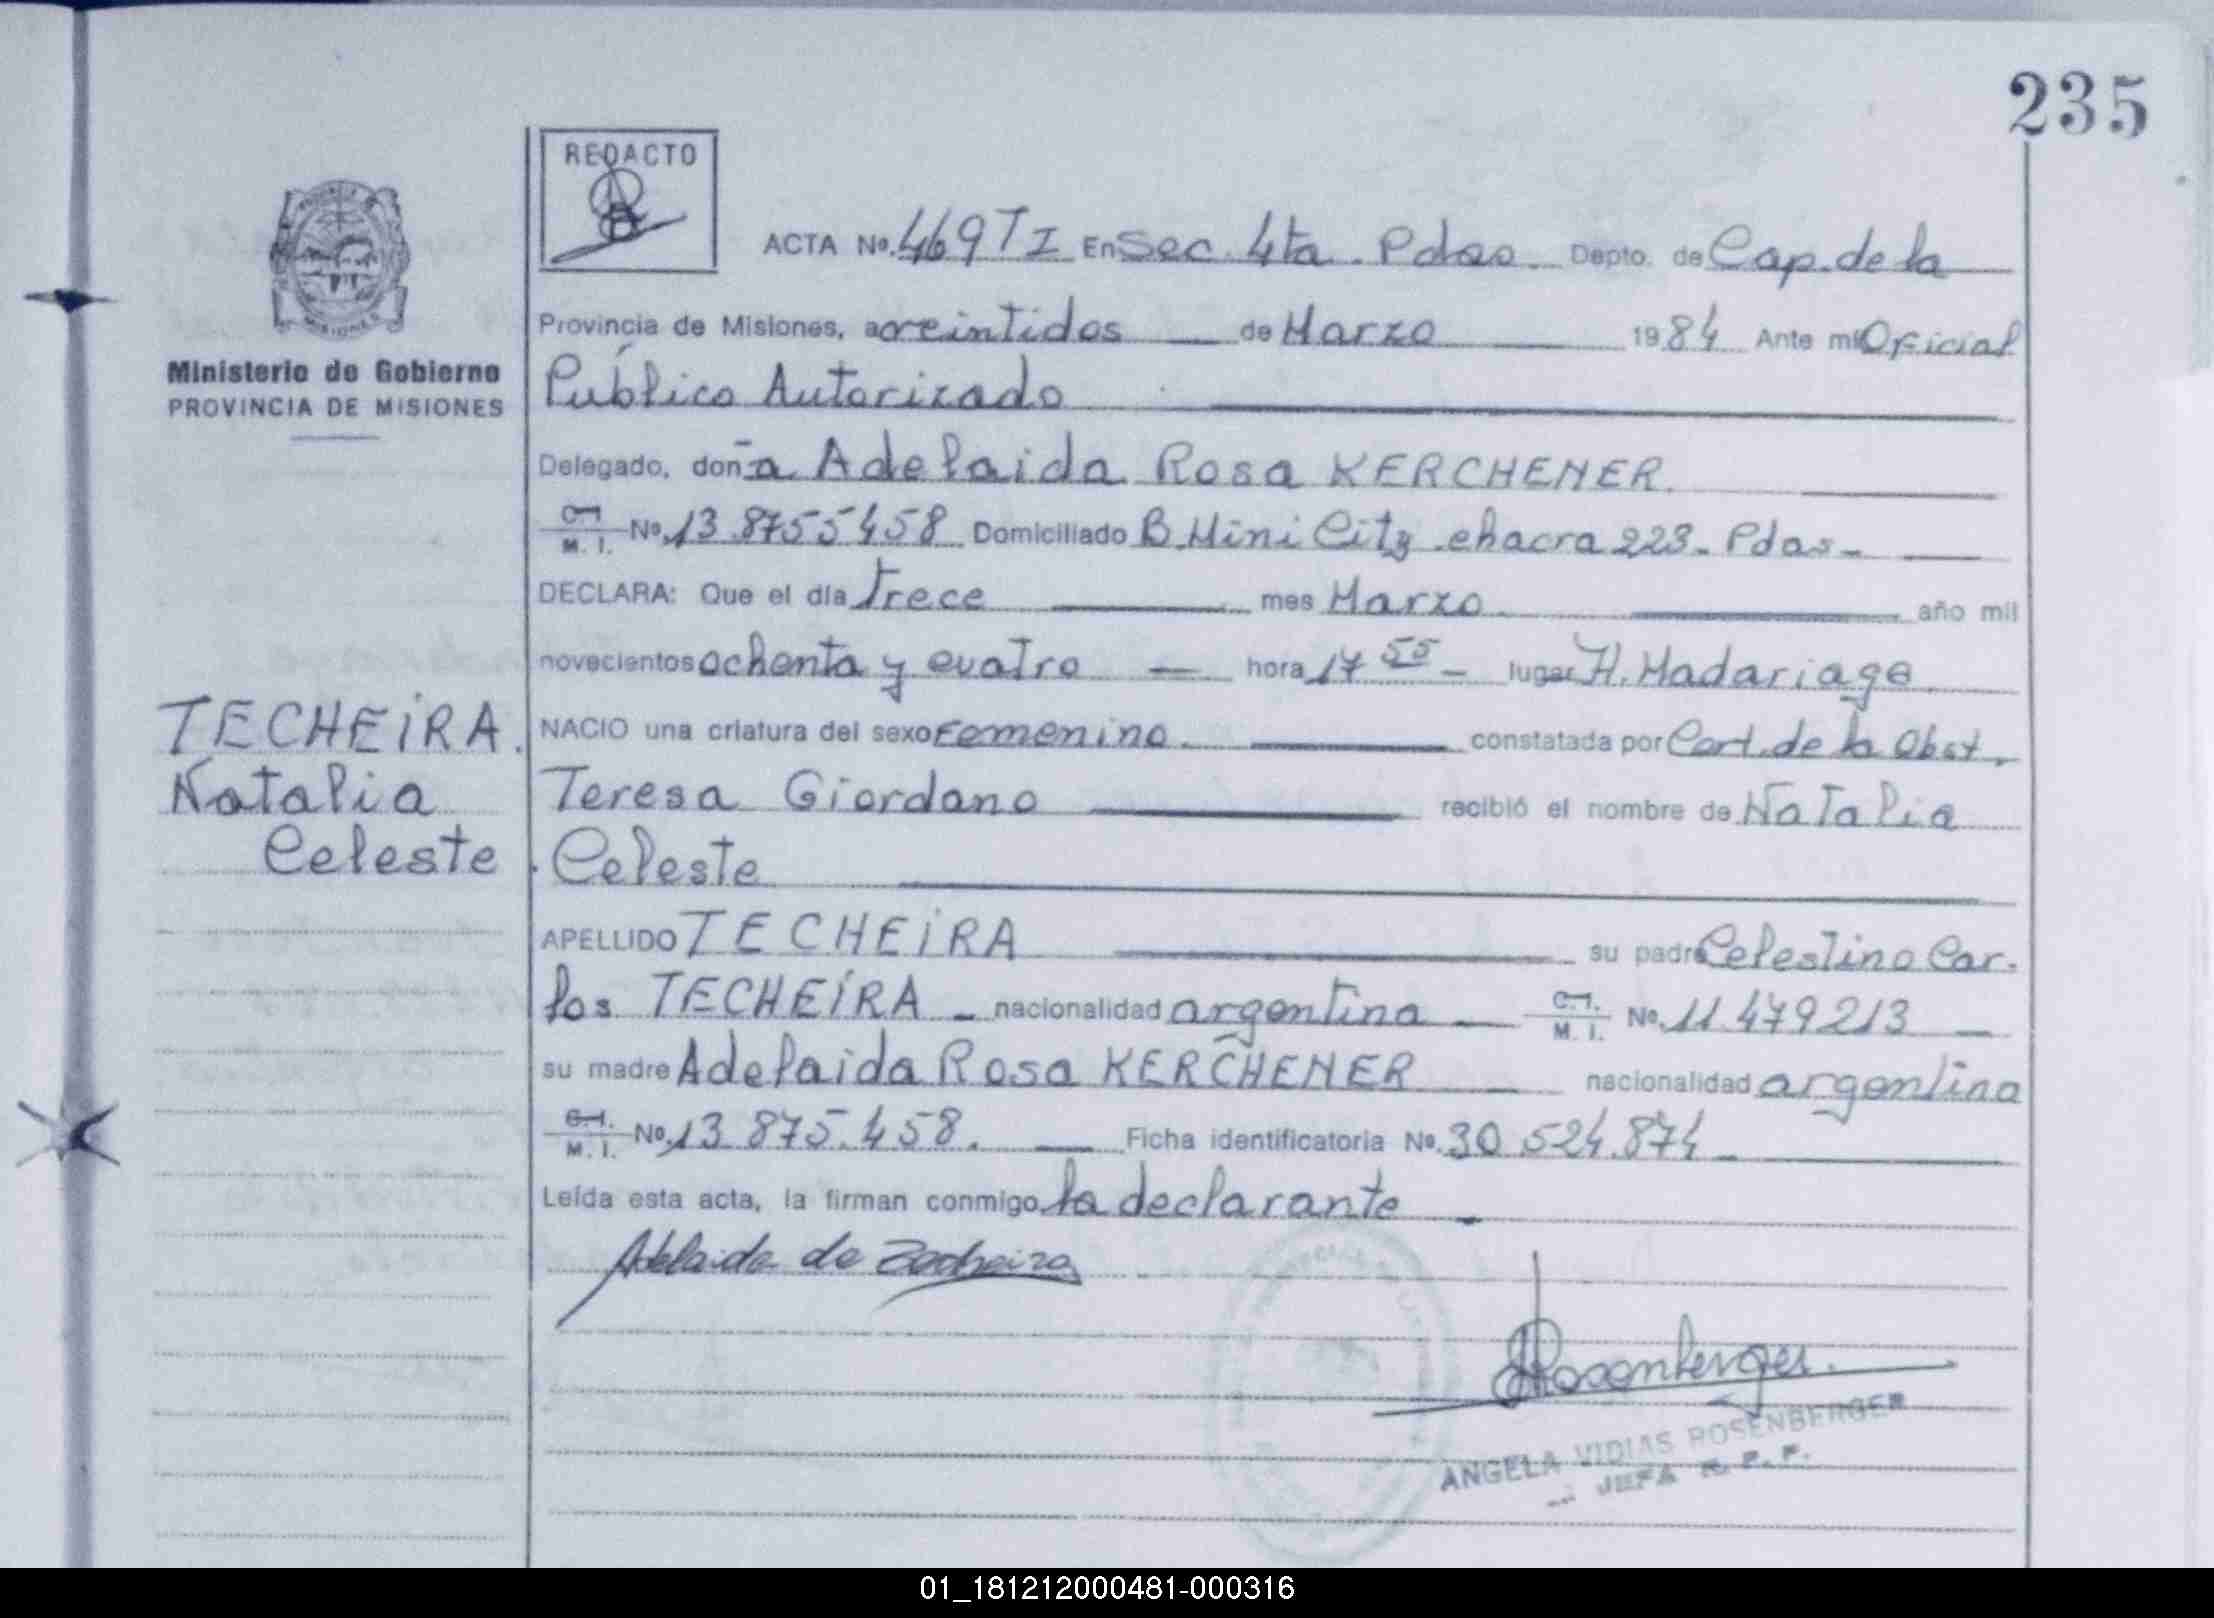 235
REDACTO
ACTA No. 469 T I En Sec. 4ta. Pdas. Depto. de Cap. de la
Provincia de Misiones, a veintidos de Marzo 1984 Ante mi Oficial
Ministerio de Gobierno
PROVINCIA DE MISIONES
Público Autorizado
Delegado, doña Adelaida Rosa KERCHENER.
C.I. M. I. No. 13.8755458 Domiciliado B. Mini City chacra 223. Pdas.
DECLARA: Que el día Trece mes Marzo año mil
novecientos ochenta y cuatro hora 17 55 lugar H. Madariaga
TECHEIRA.
Natalia
Celeste
NACIO una criatura del sexo Femenino. constatada por Cert. de la Obst.
Teresa Giordano recibió el nombre de Natalia
Celeste
APELLIDO TECHEIRA su padre Celestino Car.
los TECHEIRA nacionalidad argentina C.I. M. I. No. 11.479213
su madre Adelaida Rosa KERCHENER nacionalidad argentina
C.I. M. I. No. 13.875.458. Ficha identificatoria No. 30.524.874
Leída esta acta, la firman conmigo la declarante
Adelaida de Techeira
Rosenberger.
ANGELA VIDIAS ROSENBERGER
JEFA R. P. P.
01_181212000481-000316